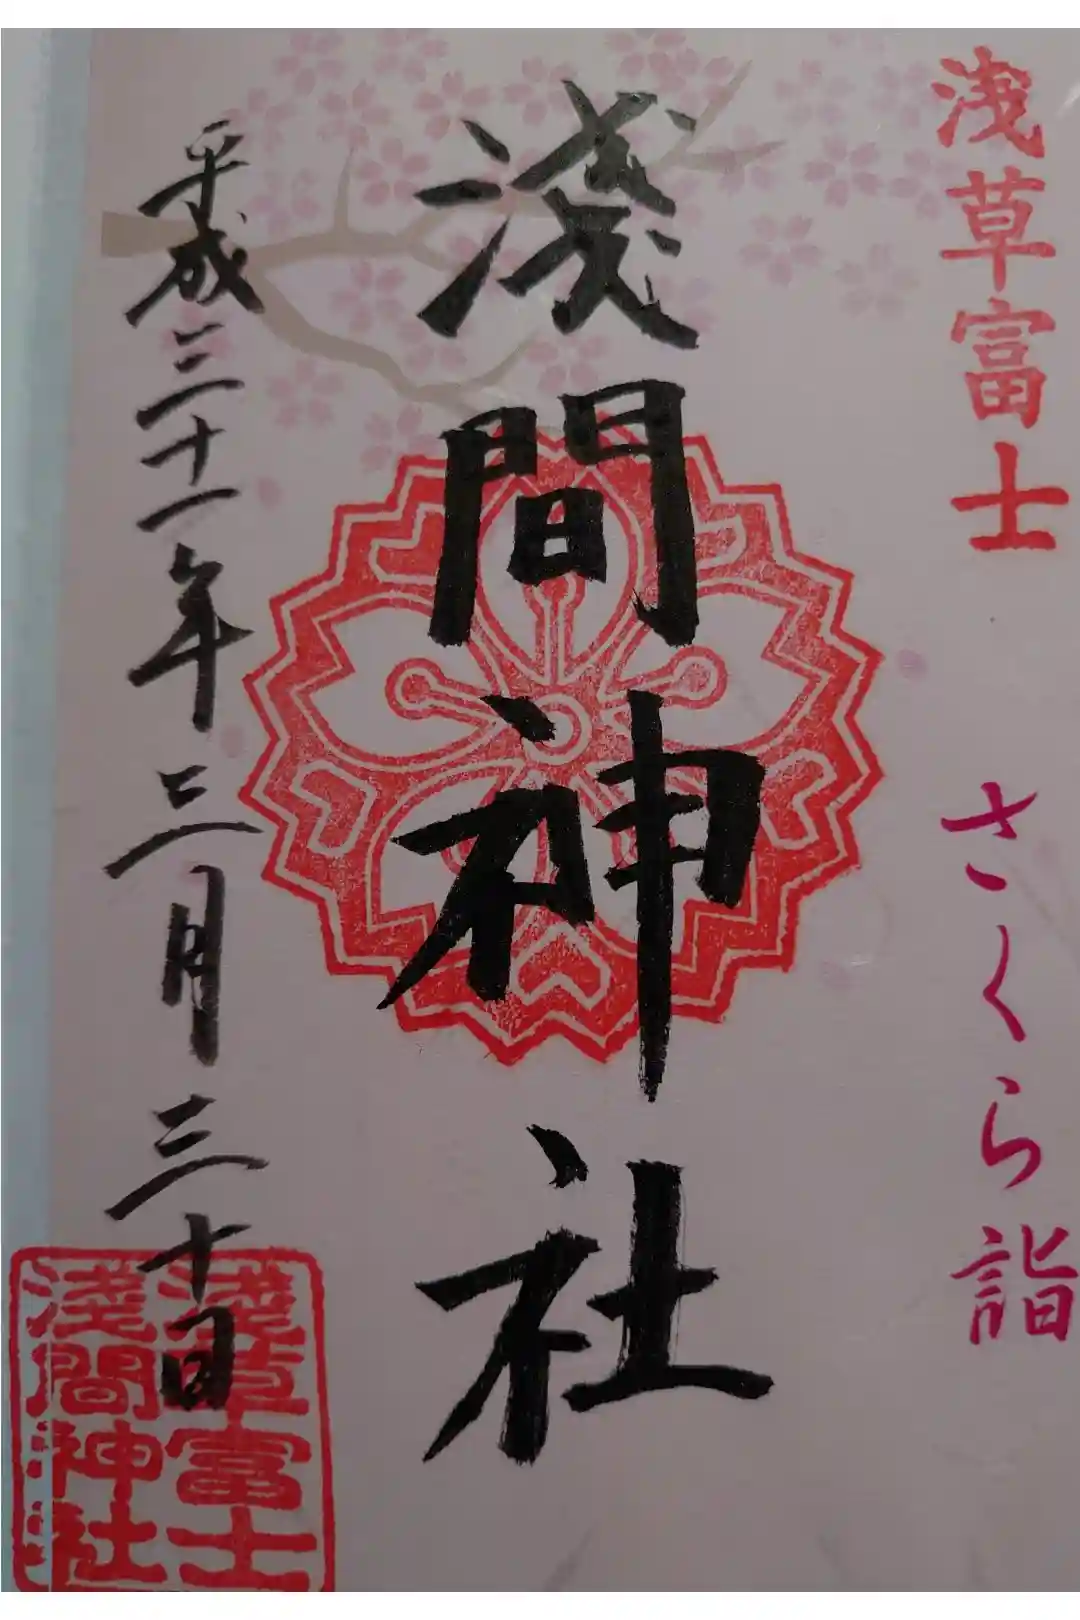 浅草富士
さくら詣
淺間神社
平成三十一年三月三十日
淺草富士
淺間神社